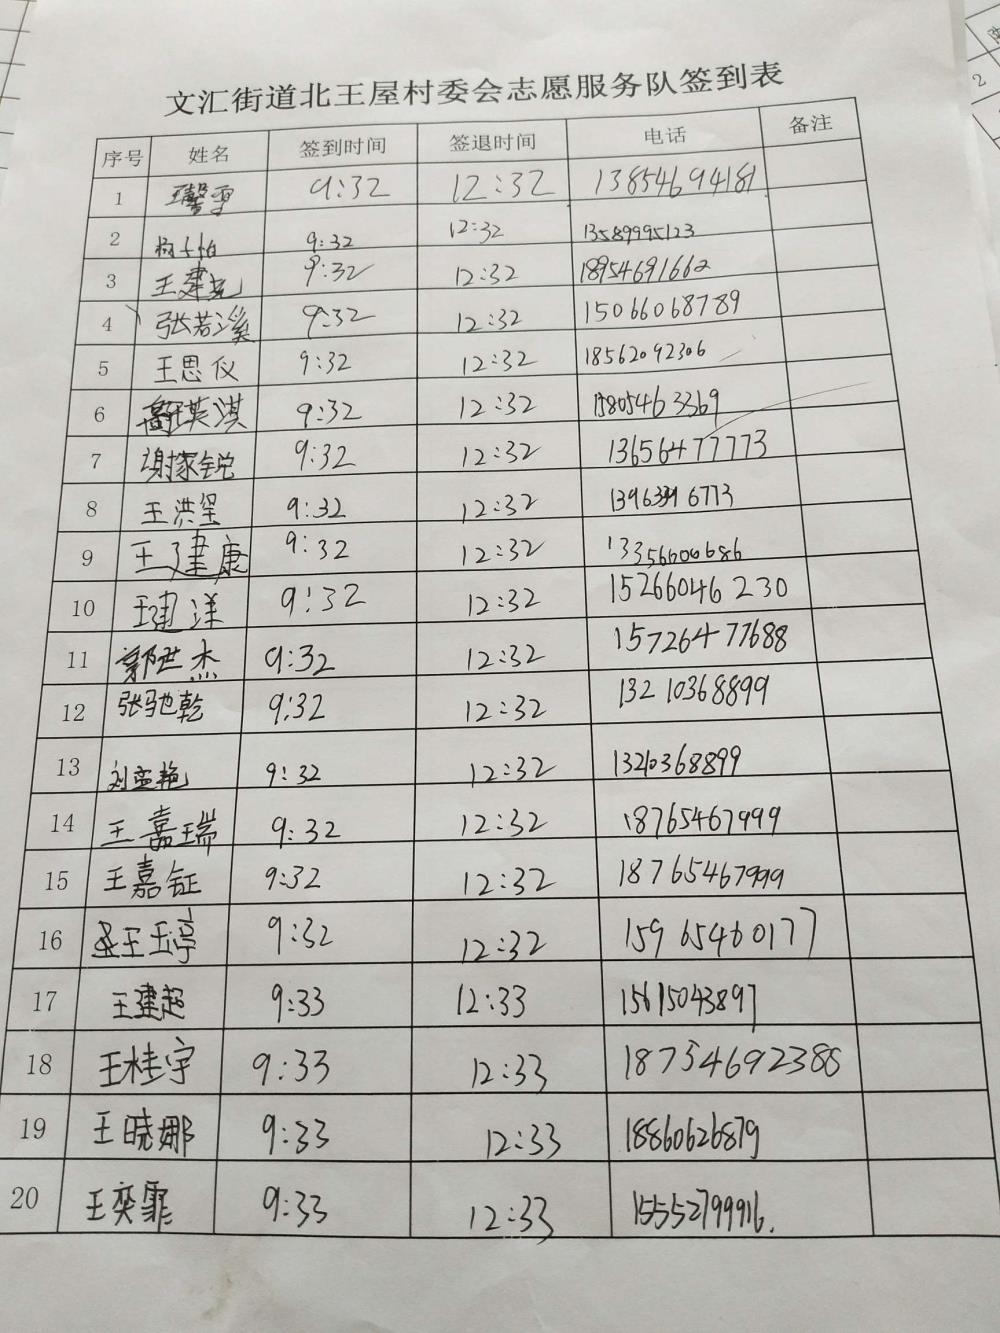 文汇街道北王屋村委会志愿服务队签到表
序号 姓名 签到时间 签退时间 电话 备注
1 王馨雪 9:32 12:32 13854694181
2 9:32 12:32 13589995123
3 王建 9:32 12:32 18954691662
4 张若溪 9:32 12:32 15066068789
5 王思仪 9:32 12:32 18562092306
6 英淇 9:32 12:32 15805463369
7 谢家锐 9:32 12:32 13656477773
8 王洪 9:32 12:32
9 王建康 9:32 12:32
10 王建洋 9:32 12:32 15266046230
11 郭世杰 9:32 12:32 15726477688
12 张驰乾 9:32 12:32 13210368899
13 刘英艳 9:32 12:32 13210368899
14 王嘉瑞 9:32 12:32 18765467999
15 王嘉钲 9:32 12:32 18765467999
16 王玉婷 9:32 12:32 15965460177
17 王建超 9:33 12:33 15615043897
18 王桂宇 9:33 12:33 18754692388
19 王晓娜 9:33 12:33 18860626879
20 王奕霏 9:33 12:33 15552799916.
2